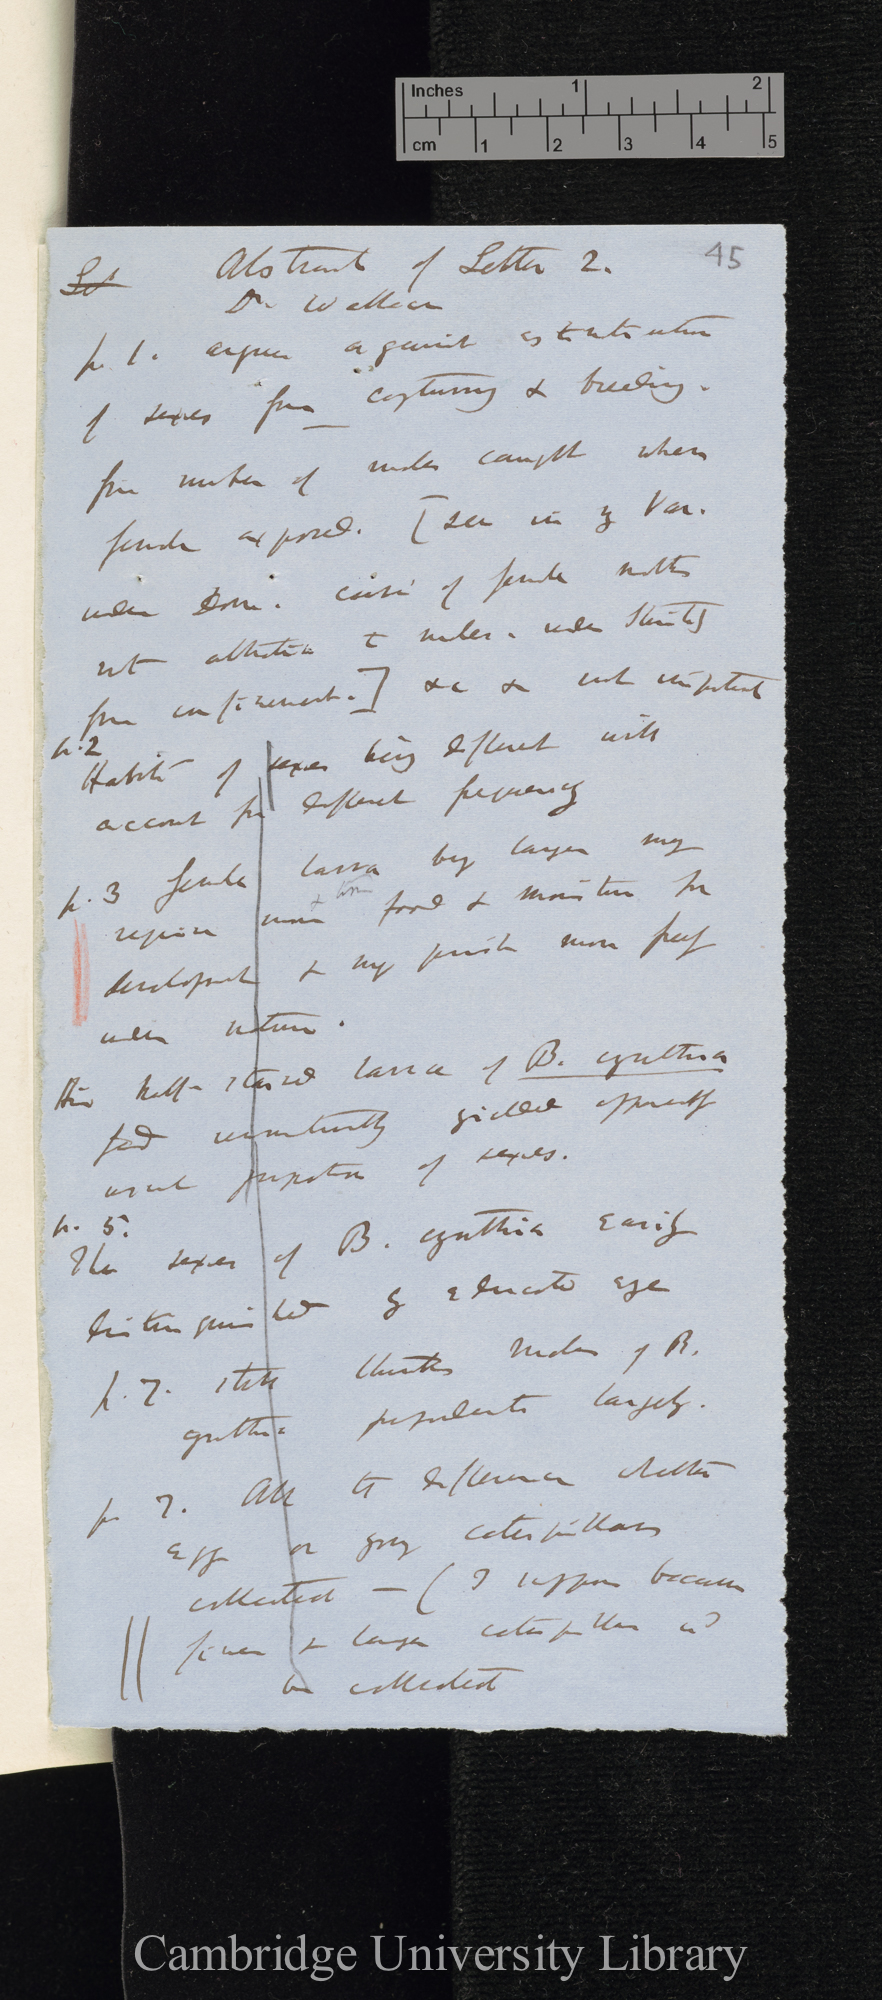 Inches 1 2
cm 1 2 3 4 5
45
Abstract of Letter 2.
Dr. Wallace
p. 1. argues against estimation
of sexes from capturing & breeding.
from number of males caught when
female exposed. [see in my Var.
under Dom. case of female moths
not attractive to males. under Sterility
from confinement.] &c & not important
p. 2
Habits of sexes being different will
account for different frequency
p. 3 female larva being larger may
& time
require more food & moisture for
development & may perish more freely
under nature.
His half-starved larvae of B. cynthia
fed yielded apparently
usual proportion of sexes.
p. 5.
The sexes of B. cynthia easily
distinguished by educated eye
p. 7. still thinks males of B.
cynthia preponderate largely.
p 7. All the difference whether
eggs or grey caterpillars
collected — (I suppose because
finer & larger caterpillars wd
be collected
Cambridge University Library